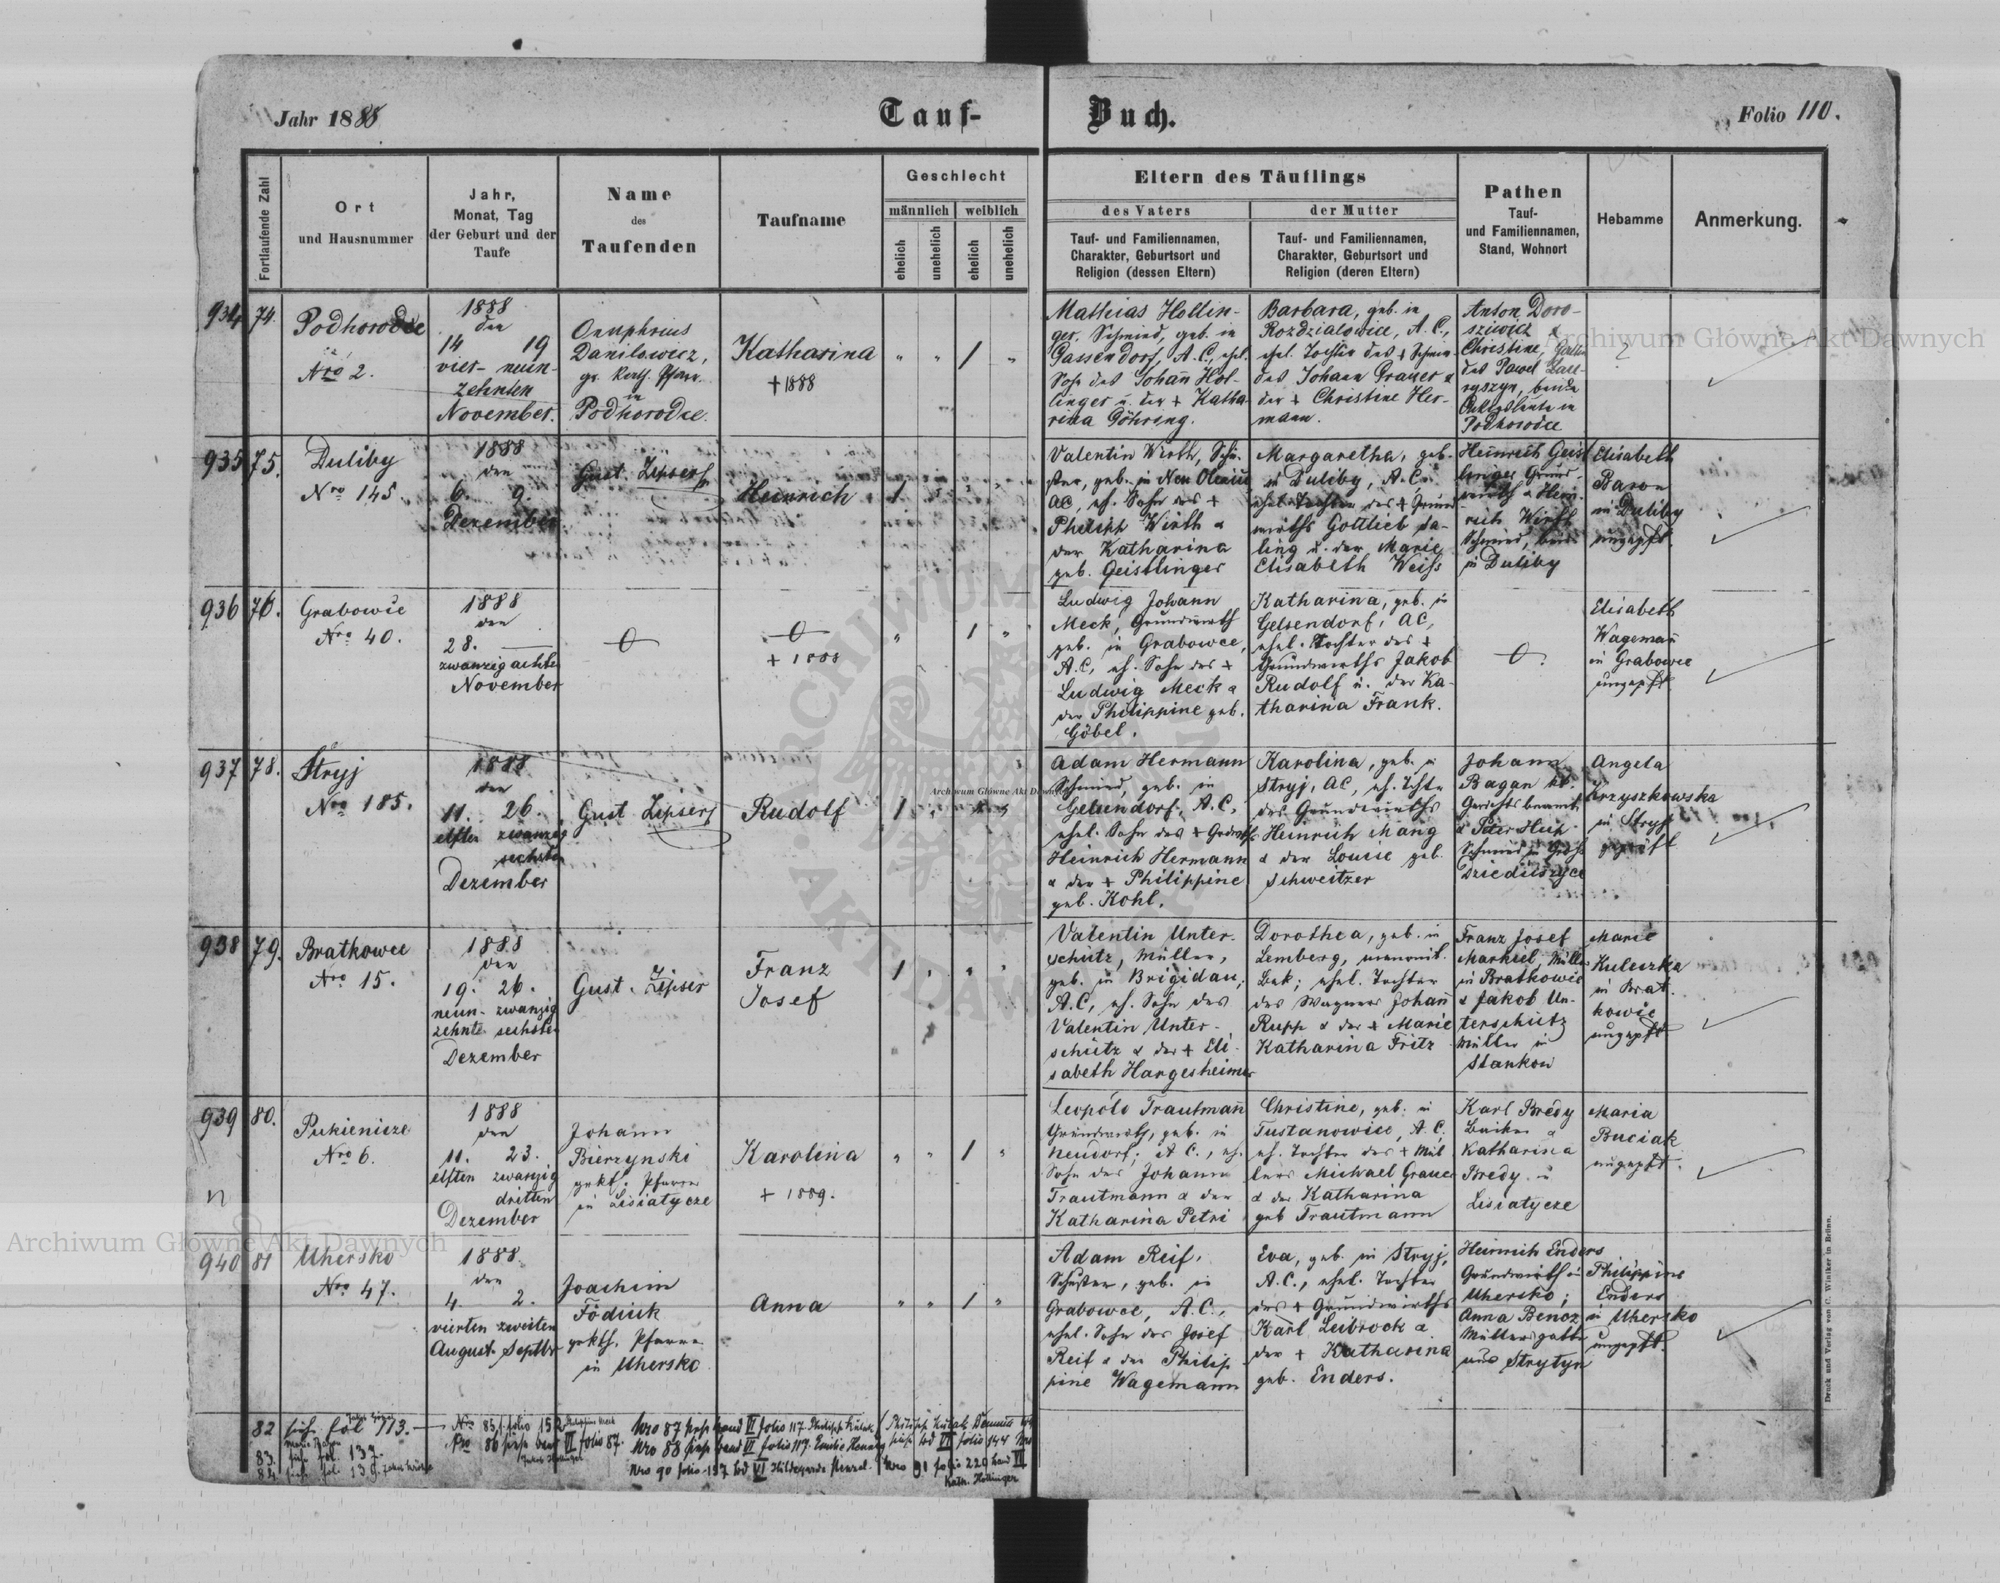 Jahr 1888
Tauf-
Buch.
Folio 110.
Fortlaufende Zahl
Ort
und Hausnummer
Jahr,
Monat, Tag
der Geburt und der
Taufe
Name
des
Taufenden
Taufname
Geschlecht
männlich
weiblich
ehelich
unehelich
ehelich
unehelich
Eltern des Täuflings
des Vaters
der Mutter
Tauf- und Familiennamen,
Charakter, Geburtsort und
Religion (dessen Eltern)
Tauf- und Familiennamen,
Charakter, Geburtsort und
Religion (deren Eltern)
Pathen
Tauf-
und Familiennamen,
Stand, Wohnort
Hebamme
Anmerkung.
934
74.
Podhorodce
Nro 2.
1888
den
14 19
vier- neun-
zehnten
November.
Onuphrius
Danilowicz,
gr. kath. Pfarr.
in
Podhorodce.
Katharina
+ 1888
" " 1 "
Mathias Hollin-
ger, Schmied, geb. in
Gassendorf, A.C., ehel.
Sohn des Johann Hol-
linger u. der + Katha-
rina Göhring.
Barbara, geb. in
Rozdzialowice, A.C.,
ehel. Tochter des +
des Johann Prauer &
der + Christine Her-
mann.
Anton Doro-
sziwicz &
Christine, Gattin
des Pawel
beide
in
Podhorodce
?
935
75.
Duliby
Nro 145.
1888
den
6. 9.
Dezember
Gust. Zipser
Heinrich
1
Valentin Wirth, Schu-
ster, geb. in Neu Olexin,
AC, eh. Sohn des +
Philipp Wirth &
der Katharina
geb. Geistlinger
Margaretha, geb.
in Duliby, A.C.
ehel. Tochter des + Grund-
wirths Gottlieb Da-
ling u. der Marie
Elisabeth Weiss
Heinrich Geist-
linger Grund-
wirth & Hein-
rich Wirth
Schmied, beide
in Duliby
Elisabeth
Baron
in Duliby
ungepft.
936
76.
Grabowce
Nro 40.
1888
den
28.
zwanzig achten
November
+ 1888
" 1 "
Ludwig Johann
Meck, Grundwirth
geb. in Grabowce,
A.C, eh. Sohn des +
Ludwig Meck &
der Philippine geb.
Göbel.
Katharina, geb. in
Gelsendorf, AC,
ehel. Tochter des +
Grundwirths Jakob
Rudolf u. der Ka-
tharina Frank.
Elisabeth
Wagemann
in Grabowce
ungepft.
937
78.
Stryj
Nro 185.
1888
den
11. 26.
elften zwanzig
sechsten
Dezember
Gust. Zipser
Rudolf
1
Adam Hermann
Schmied, geb. in
Gelsendorf, A.C,
ehel. Sohn des +
Heinrich Hermann
& der + Philippine
geb. Kohl.
Karolina, geb. in
Stryj, AC, eh. Tochter
des Grundwirths
Heinrich Mang
& der Louise geb.
Schweitzer
Johann
Bagan kk.
Gerichtsbeamt.
& Peter Huk
Schmied in Gross
Dzieduszyce
Angela
Krzyszkowska
in Stryj
geprüft
938
79.
Bratkowce
Nro 15.
1888
den
19. 26.
neun- zwanzig
zehnte sechsten
Dezember
Gust. Zipser
Franz
Josef
1 " " "
Valentin Unter-
schütz, Müller,
geb. in Brigidau,
A.C, eh. Sohn des
Valentin Unter-
schütz & der + Eli-
sabeth Hargesheimer
Dorothea, geb. in
Lemberg, menonit.
Bek; ehel. Tochter
des Wagners Johann
Rupp & der + Marie
Katharina Fritz
Franz Josef
Markiel, Müller
in Bratkowce
& Jakob Un-
terschütz
Müller in
Stankow
Marie
Kuleszka
in Brat-
kowce
ungepft
939
80.
Pukienicze
Nro 6.
1888
den
11. 23.
elften zwanzig
dritten
Dezember
Johann
Bierzynski
grkt. Pfarrer
in Lisiatycze
Karolina
+ 1889.
" " 1 "
Leopold Trautmann
Grundwirth, geb. in
Neudorf, A C., eh.
Sohn des Johann
Trautmann & der
Katharina Petri
Christine, geb. in
Tustanowice, A.C,
eh. Tochter des + Mül-
lers Michael Grauer
& der Katharina
geb Trautmann
Karl Bredy
&
Katharina
Bredy in
Lisiatycze
Maria
Buciak
ungepft.
940
81
Uhersko
Nro 47.
1888.
den
4. 2.
vierten zweiten
August Septbr
Joachim
Fědiuk
grkth. Pfarrer
in Uhersko
Anna
" " 1 "
Adam Reif,
Schuster, geb. in
Grabowce, A.C.,
ehel. Sohn des Josef
Reif & der Philip-
pine Wagemann
Eva, geb. in Stryj,
A.C., ehel. Tochter
des + Grundwirths
Karl Leibrock &
der + Katharina
geb. Enders.
Heinrich Enders
Grundwirth in
Uhersko;
Anna Benoz
Müllersgattin
aus Strytyn
Philippine
Enders
in Uhersko
ungepft.
82 sieh fol 113.
83. sieh fol. 137.
84 sieh fol. 139.
Nro 85 folio 152
Nro 86 sieh band VI folio 87.
Nro 87 sieh band VI folio 117. Philipp Kubik
Nro 88 sieh band VI folio 119. Emilie Hennig
Nro 90 folio 137 bd VI Hildegarde Menzel.
sieh bd VI folio 144
Nro 91 folio 220 band VI
Kath. Hollinger
Druck und Verlag von C. Winiker in Brünn.
Archiwum Główne Akt Dawnych
Archiwum Główne Akt Dawnych
Archiwum Główne Akt Dawnych